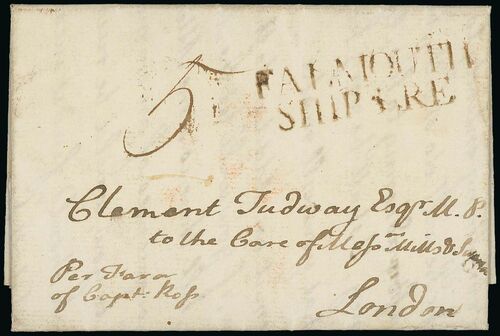 5 FALMOUTH
SHIP LRE
Clement Tudway Esqr. M. P.
to the Care of Messrs Mills &
Per Tara
of Capt: Ross
London